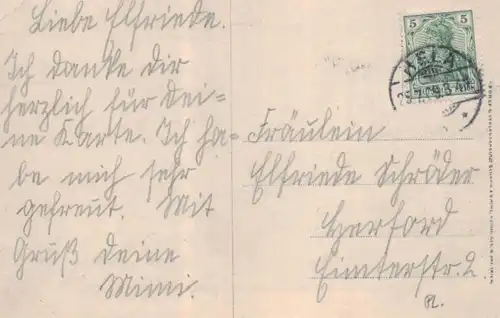 Liebe Elfriede.
Ich danke dir
herzlich für Dei-
ne Karte. Ich ha-
be mich sehr
gefreut. Mit
Gruß deine
Mimi.
5 5
HELA
Fräulein
Elfriede Schröder
Herford
Eimterstr. 2.